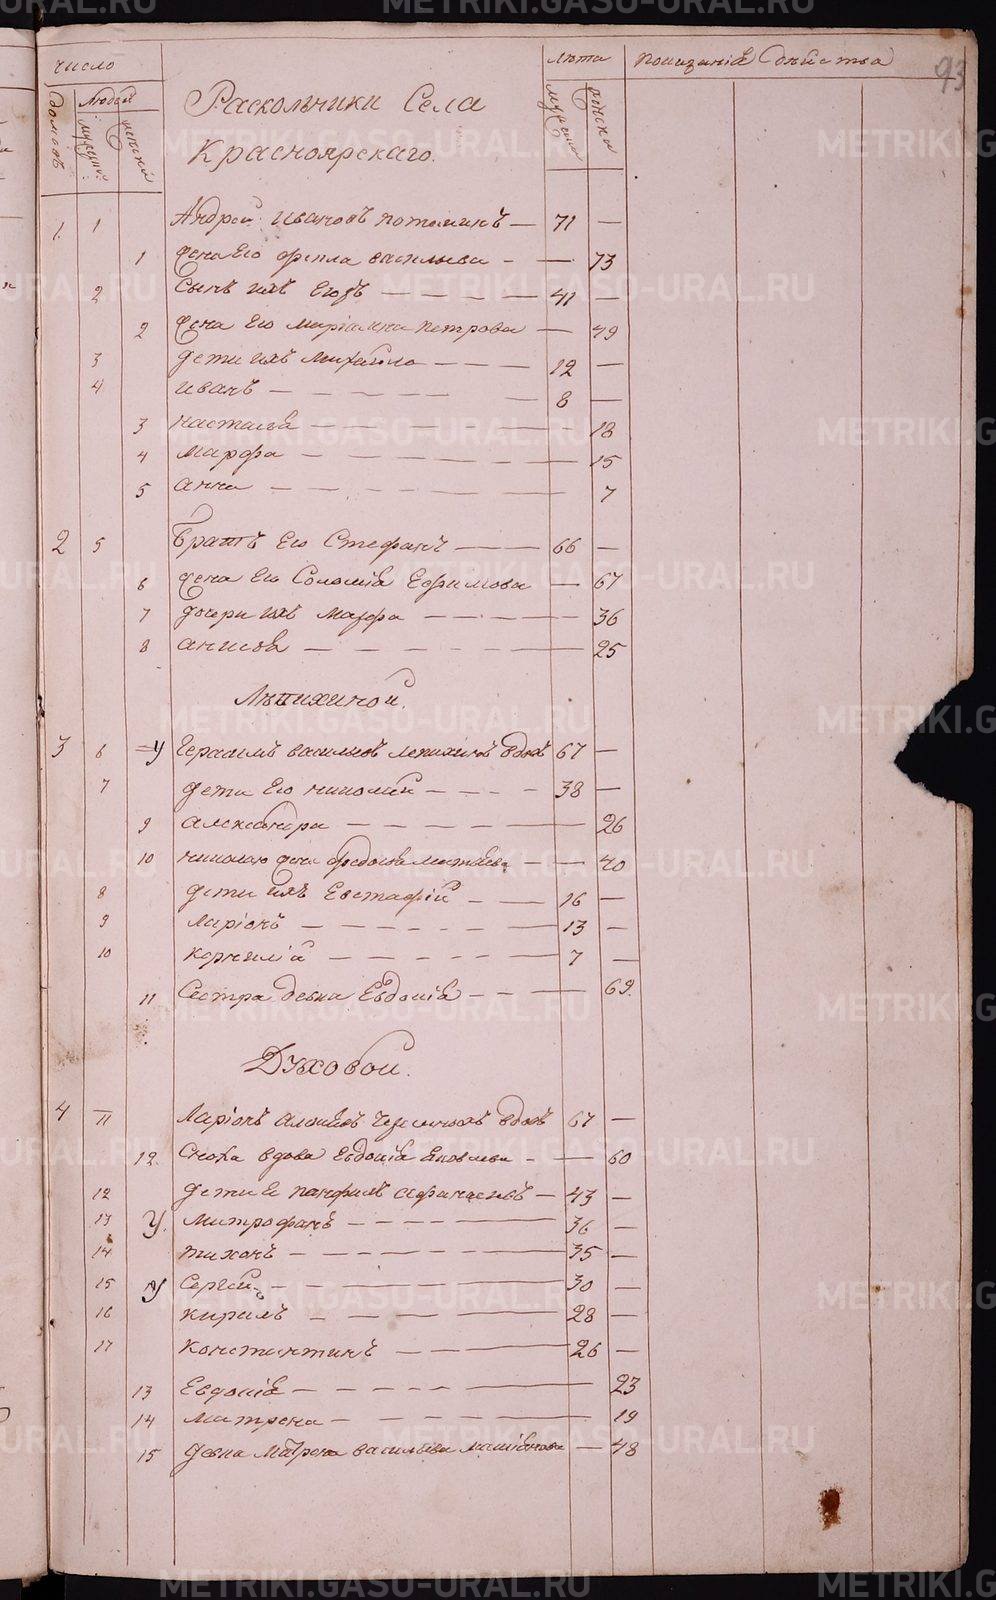 число
лѣта
показанія
93
домовъ
людей
мужска
женска
Раскольники Села
Красноярскаго.
1. 1 Андрей Ивановъ потокинъ — 71 —
1 жена Его Фекла васильева - — 73
2 Сынъ ихъ Егоръ - - - - 41 —
2 жена Его Маріамна петрова — 49
3 дети ихъ михайло - - - - 12 —
4 иванъ - - - - - 8 —
3 настасья - - - - 18
4 марфа - - - - - 15
5 анна - - - - - 7
2 5 Братъ Его Стефанъ — — 66 —
6 жена Его Соломія Ефимова — 67
7 дочери ихъ марфа - - - - 36
8 анисья - - - - - 25
Лѣпихиной.
3 6 У Герасимъ васильевъ лепихинъ вдовъ 67 —
7 дети Его николай - - - - 38 —
9 александра - - - - - 26
10 николаю жена Федосья матвѣева - — 40
8 дети ихъ Евстафій - — 16 —
9 ларіонъ - - - - - 13 —
10 корнилій - - - - - 7 —
11 Сестра девка Евдокія - - — 69.
Духовой.
4 11 Ларіонъ вдовъ 67 —
12. Сноха вдова Евдокія яковлева - — 60
12 дети Ея панфилъ афанасьевъ — 43 —
13 У. митрофанъ - - - — 36 —
14 тихонъ - - - - — 35 —
15 У Сергей - - - — 30 —
16 кирилъ - - - — 28 —
17 константинъ - - — 26 —
13 Евдокія - - - - — 23
14 матрена - - - - — 19
15 девка матрена васильева — 48
METRIKI.GASO-URAL.RU